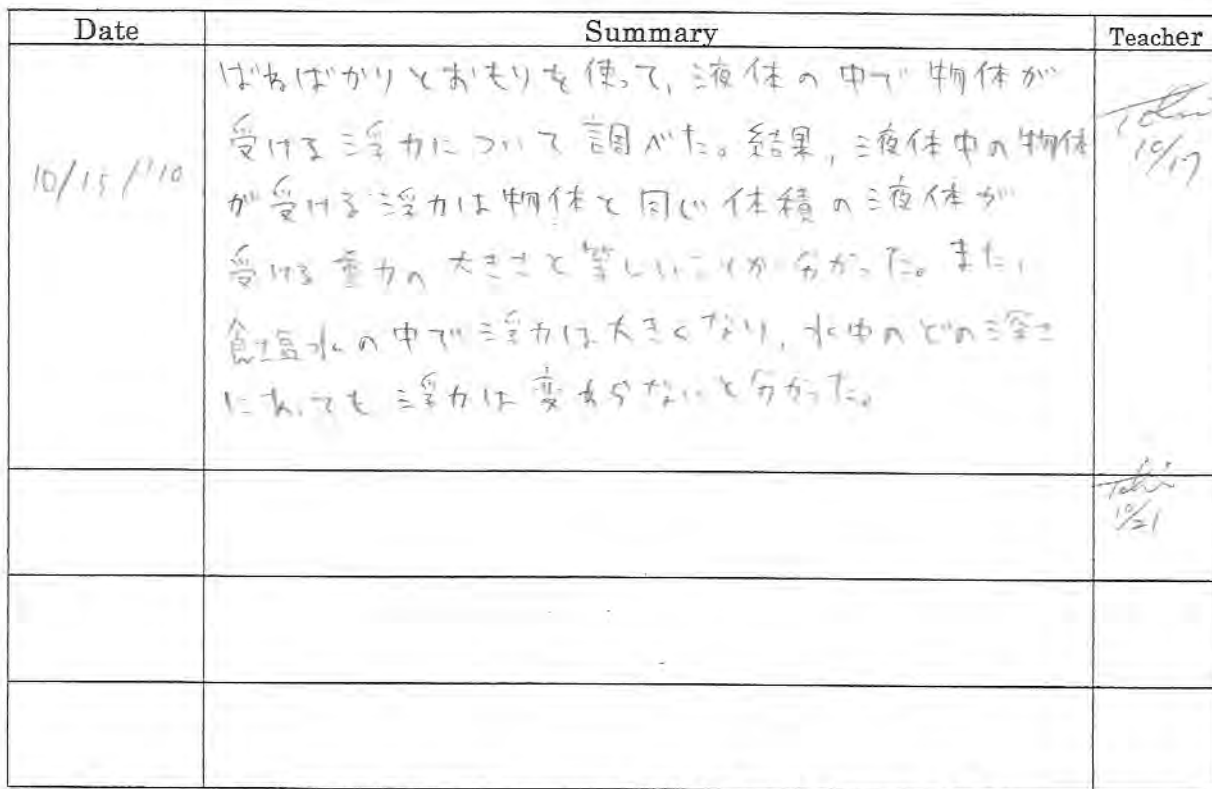 Date Summary Teacher
ばねばかりとおもりを使って、液体の中で物体が
受ける浮力について調べた。結果、液体中の物体
10/15/'10
が受ける浮力は物体と同じ体積の液体が
受ける重力の大きさと等しいことが分かった。また、
食塩水の中で浮力は大きくなり、水中のどの深さ
にあっても浮力は変わらないと分かった。
10/17
10/21